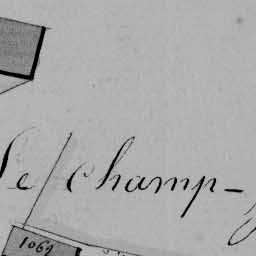 le champ-
1069